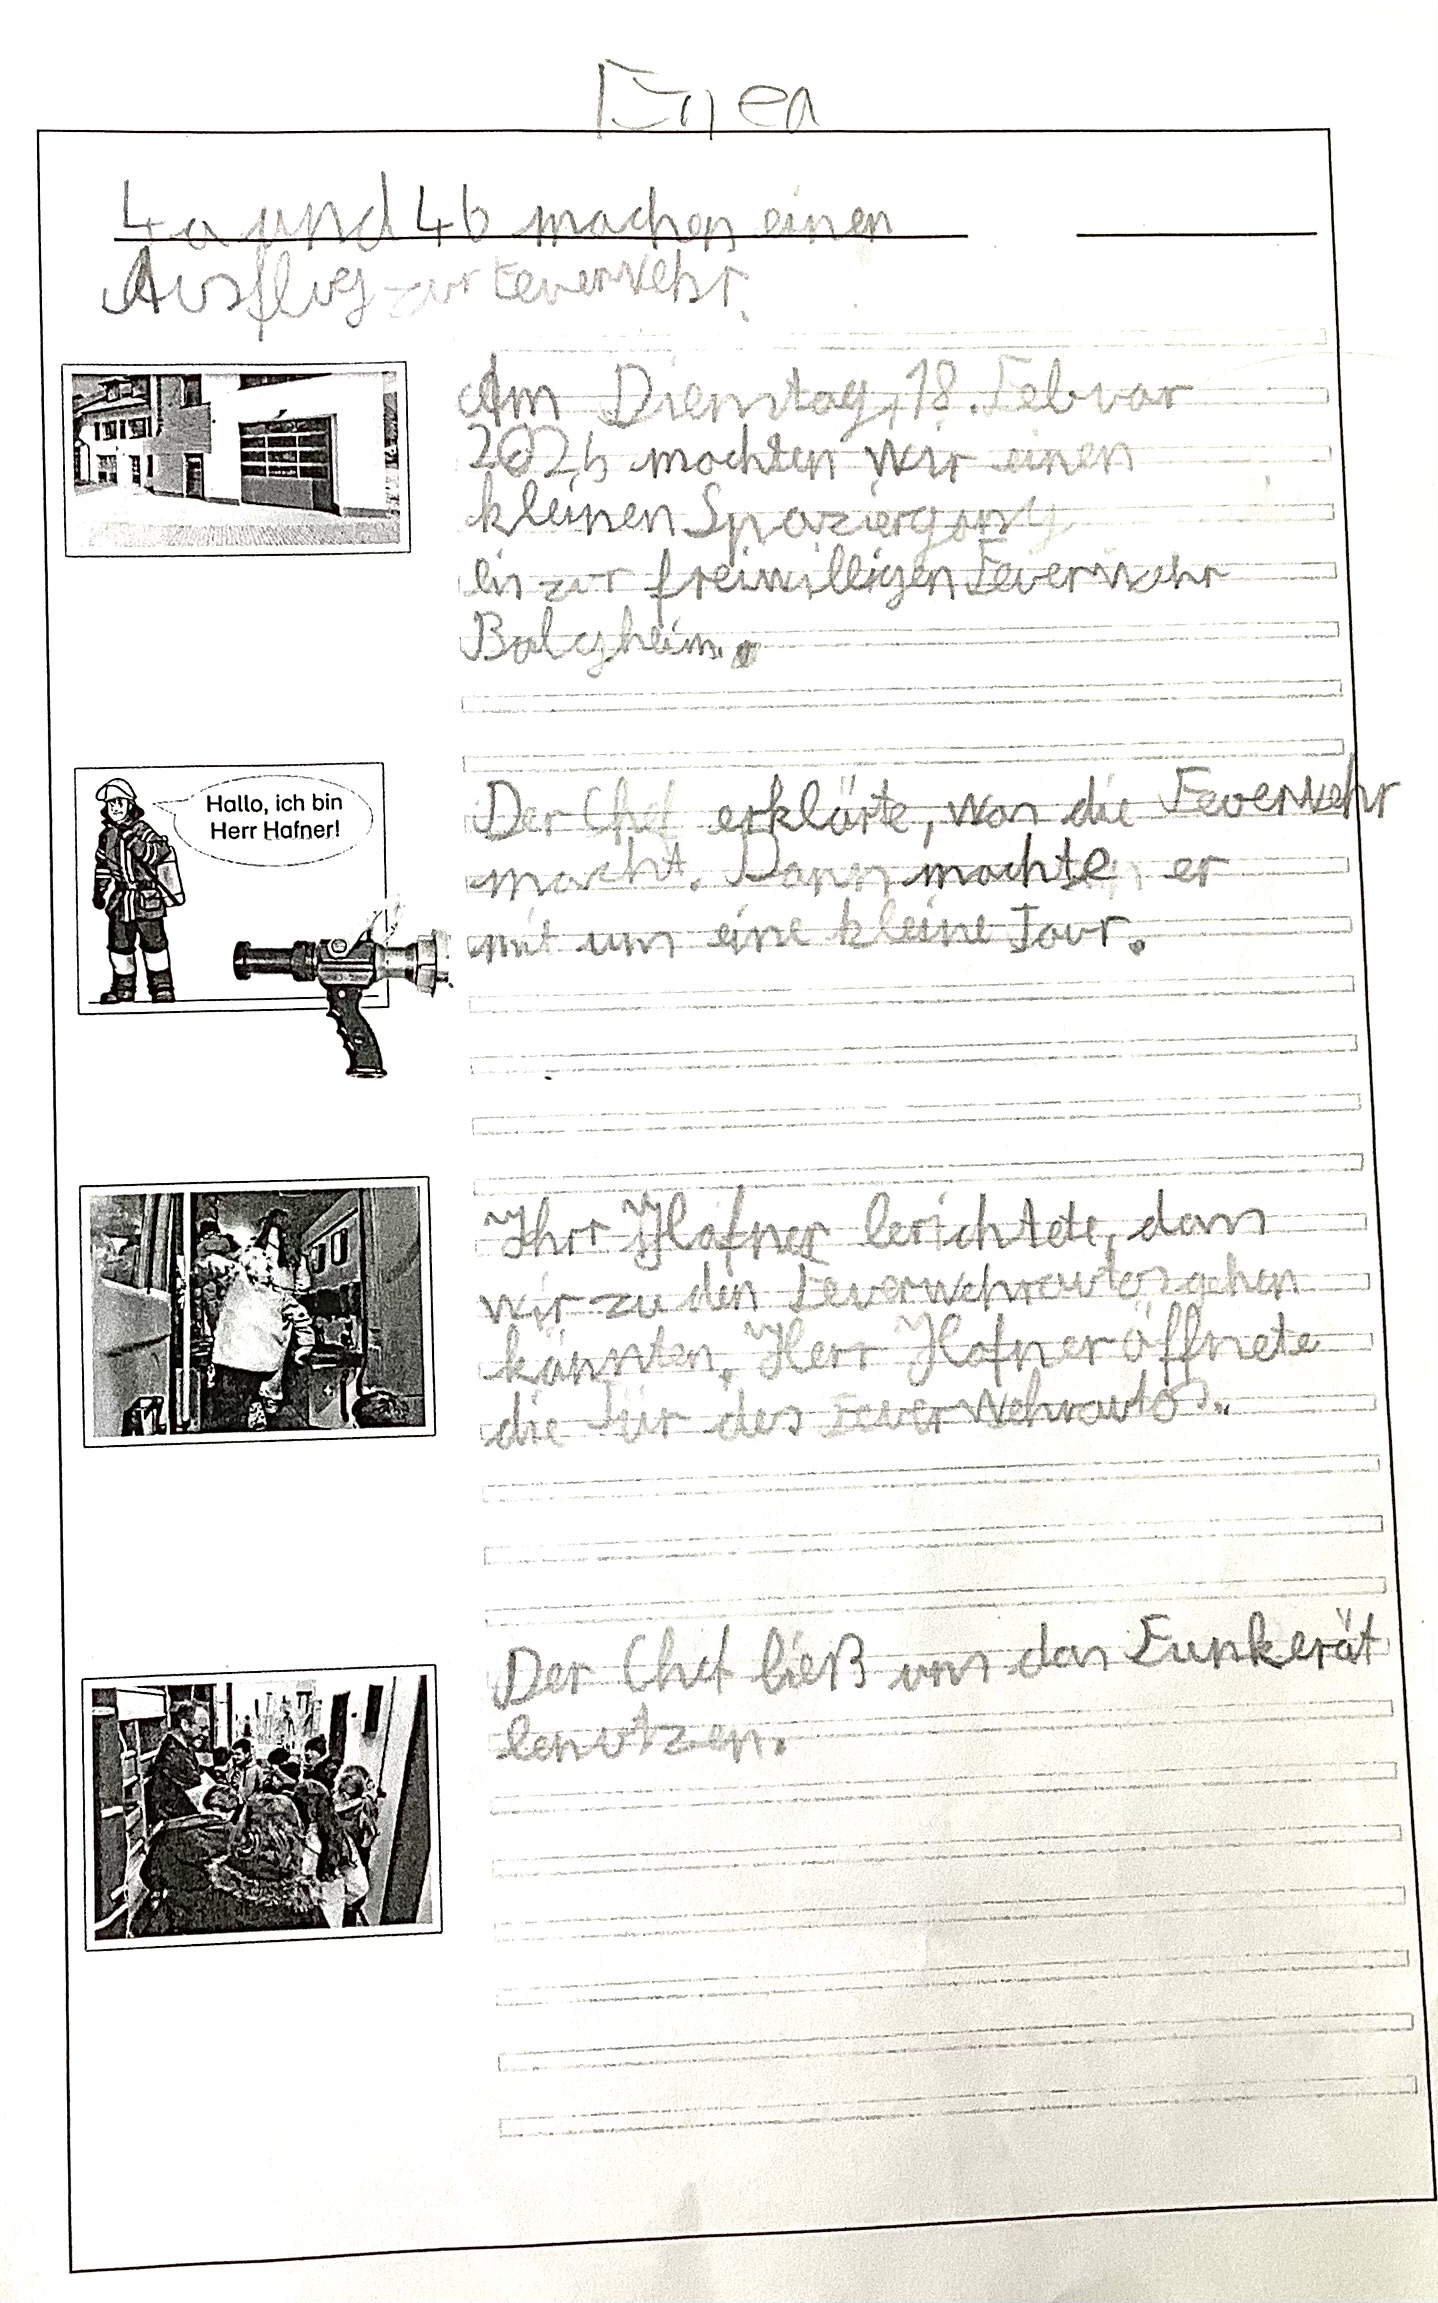 Enea
4a und 4b machen einen
Ausflug zur Feuerwehr.
Am Dienstag, 18. Februar
2025 machten wir einen
kleinen Spaziergang
bis zur freiwilligen Feuerwehr
Balgheim.
Hallo, ich bin
Herr Hafner!
Der Chef erklärte, was die Feuerwehr
macht. Dann machte er
mit uns eine kleine Tour.
Herr Hafner berichtete, dass
wir zu den Feuerwehrautos gehen
könnten. Herr Hafner öffnete
die Tür des Feuerwehrautos.
Der Chef ließ uns das Funkerät
benutzen.